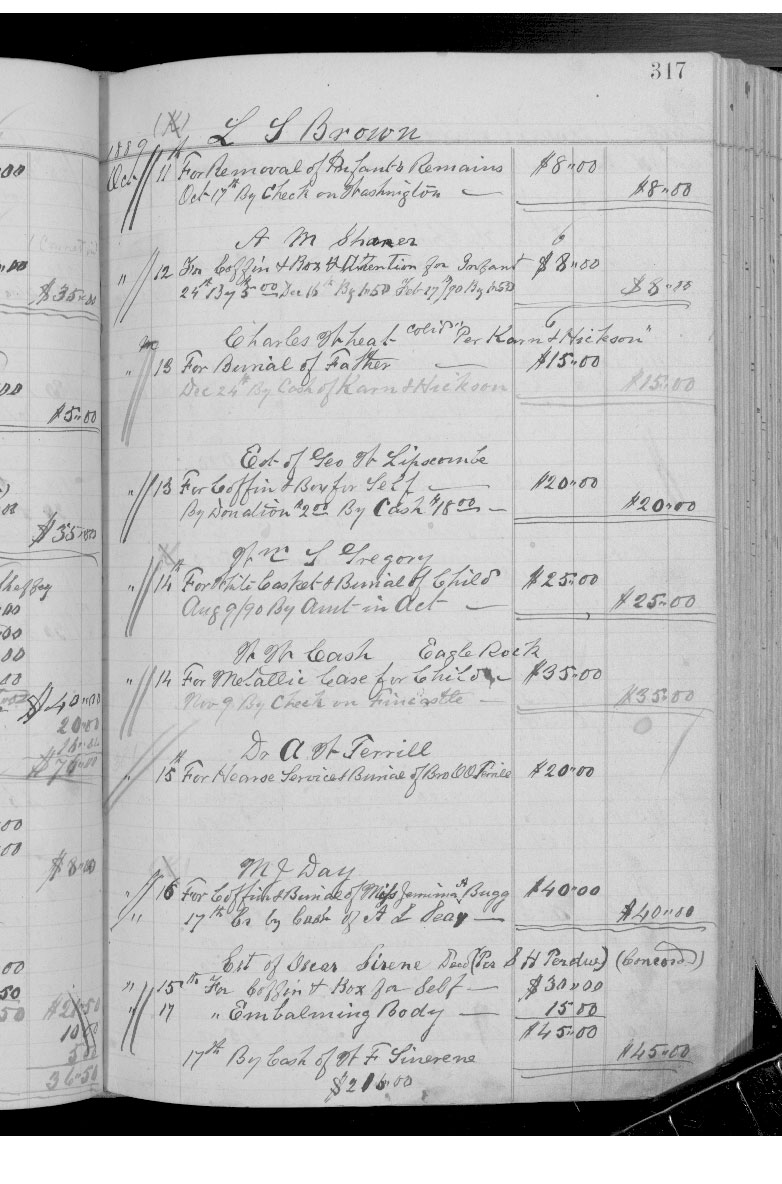 317
L S Brown
1889
Oct 11th For Removal of Infant's Remains $8.00
Oct 17th By Check on Washington — $8.00
A M Shaner
" 12 For Coffin & Box & Attention for Infant $8.00
Dec 16th By 1.50 Feb 17th/90 By 1.50 $8.00
$35.00
Charles Wheat cold "Per Karn & Hickson"
" 13 For Burial of Father — $15.00
Dec 24th By Cash of Karn & Hickson $15.00
$5.00
Est of Geo W Lipscombe
" 13 For Coffin & Box for Self — $20.00
By Donation $2.00 By Cash $18.00 — $20.00
$35.00
Wm S Gregory
" 14th For White Casket & Burial of Child $25.00
Aug 9/90 By Amt in Act — $25.00
W W Cash Eagle Rock
" 14 For Metallic Case for Child — $35.00
Nov 9 By Check on Fincastle — $35.00
$40.00
20.00
$70.00
Dr A W Terrill
" 15th For Hearse Services & Burial of Bro O O Terrill $20.00
M J Day
" 16 For Coffin & Burial of Miss Jemima A Bugg $40.00
" 17th Cr by Cash of A L Seay — $40.00
$8.00
Est of Oscar Sirene Decd (Per S H Perdue) (Concord)
" 15th For Coffin & Box for Self — $30.00
" 17 " Embalming Body — 15.00
$45.00
17th By Cash of W F Sinerene $45.00
$216.00
$21.50
5.00
36.50